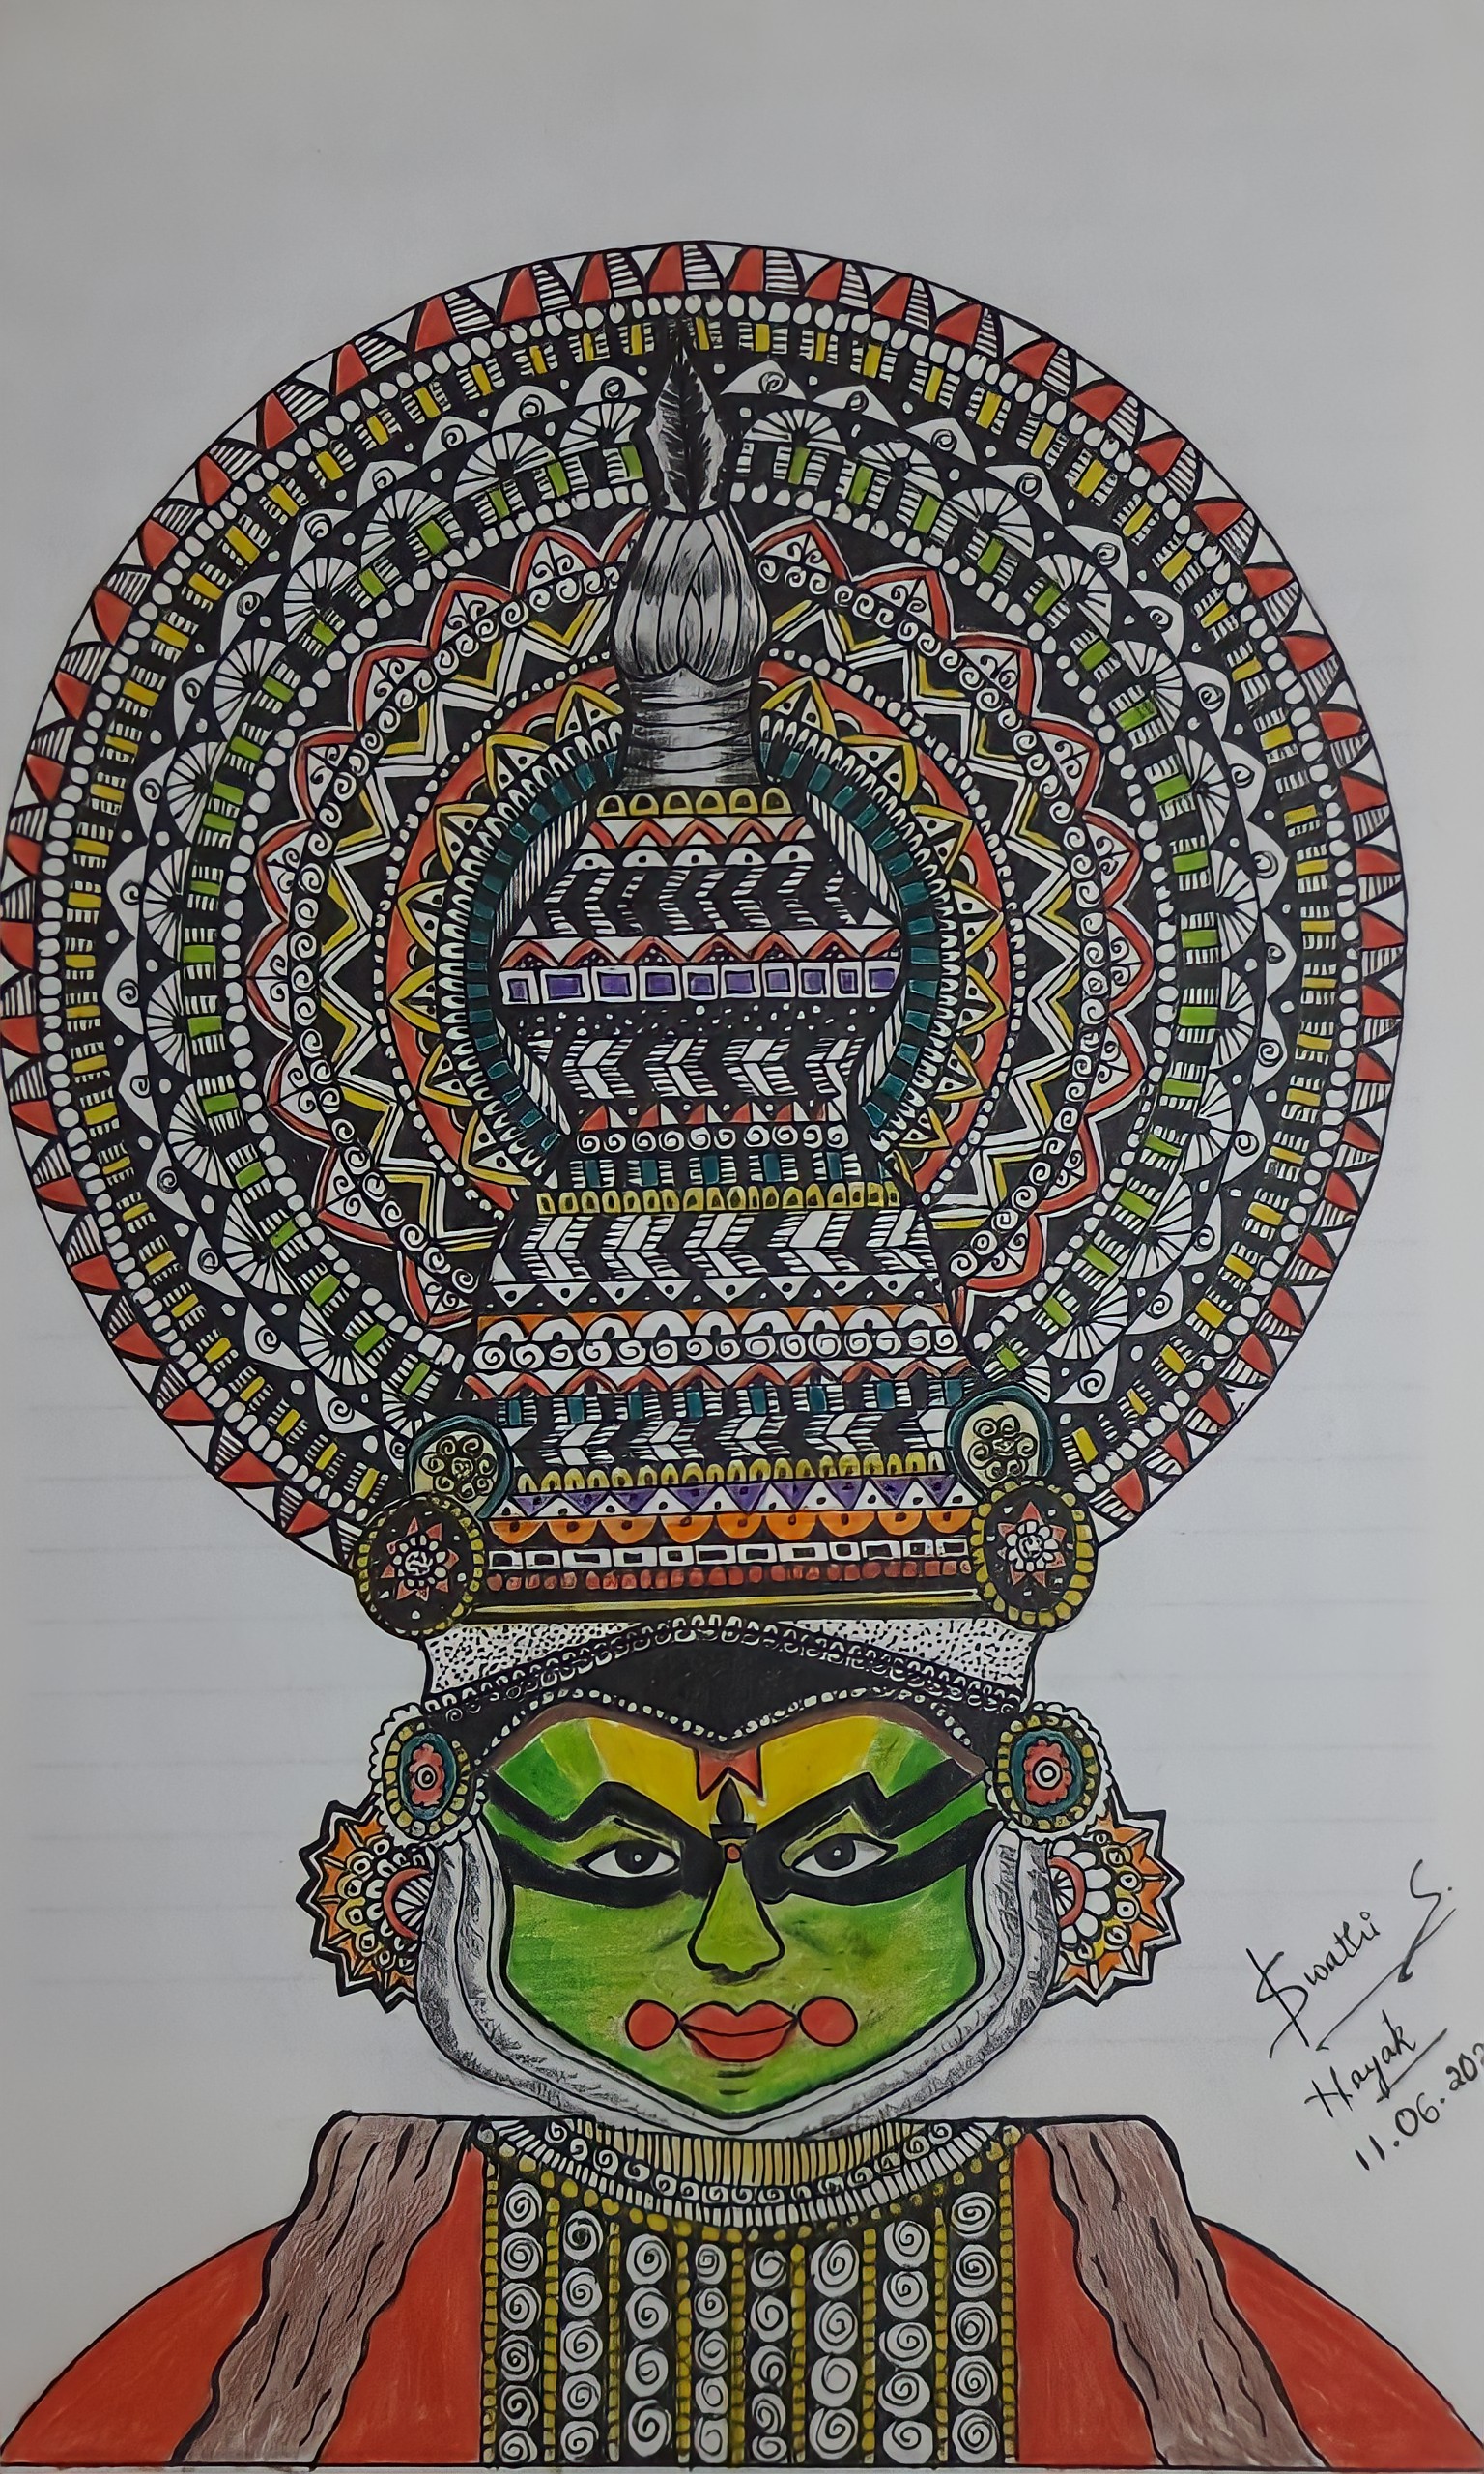 Swathi S.
Nayak
11.06.202